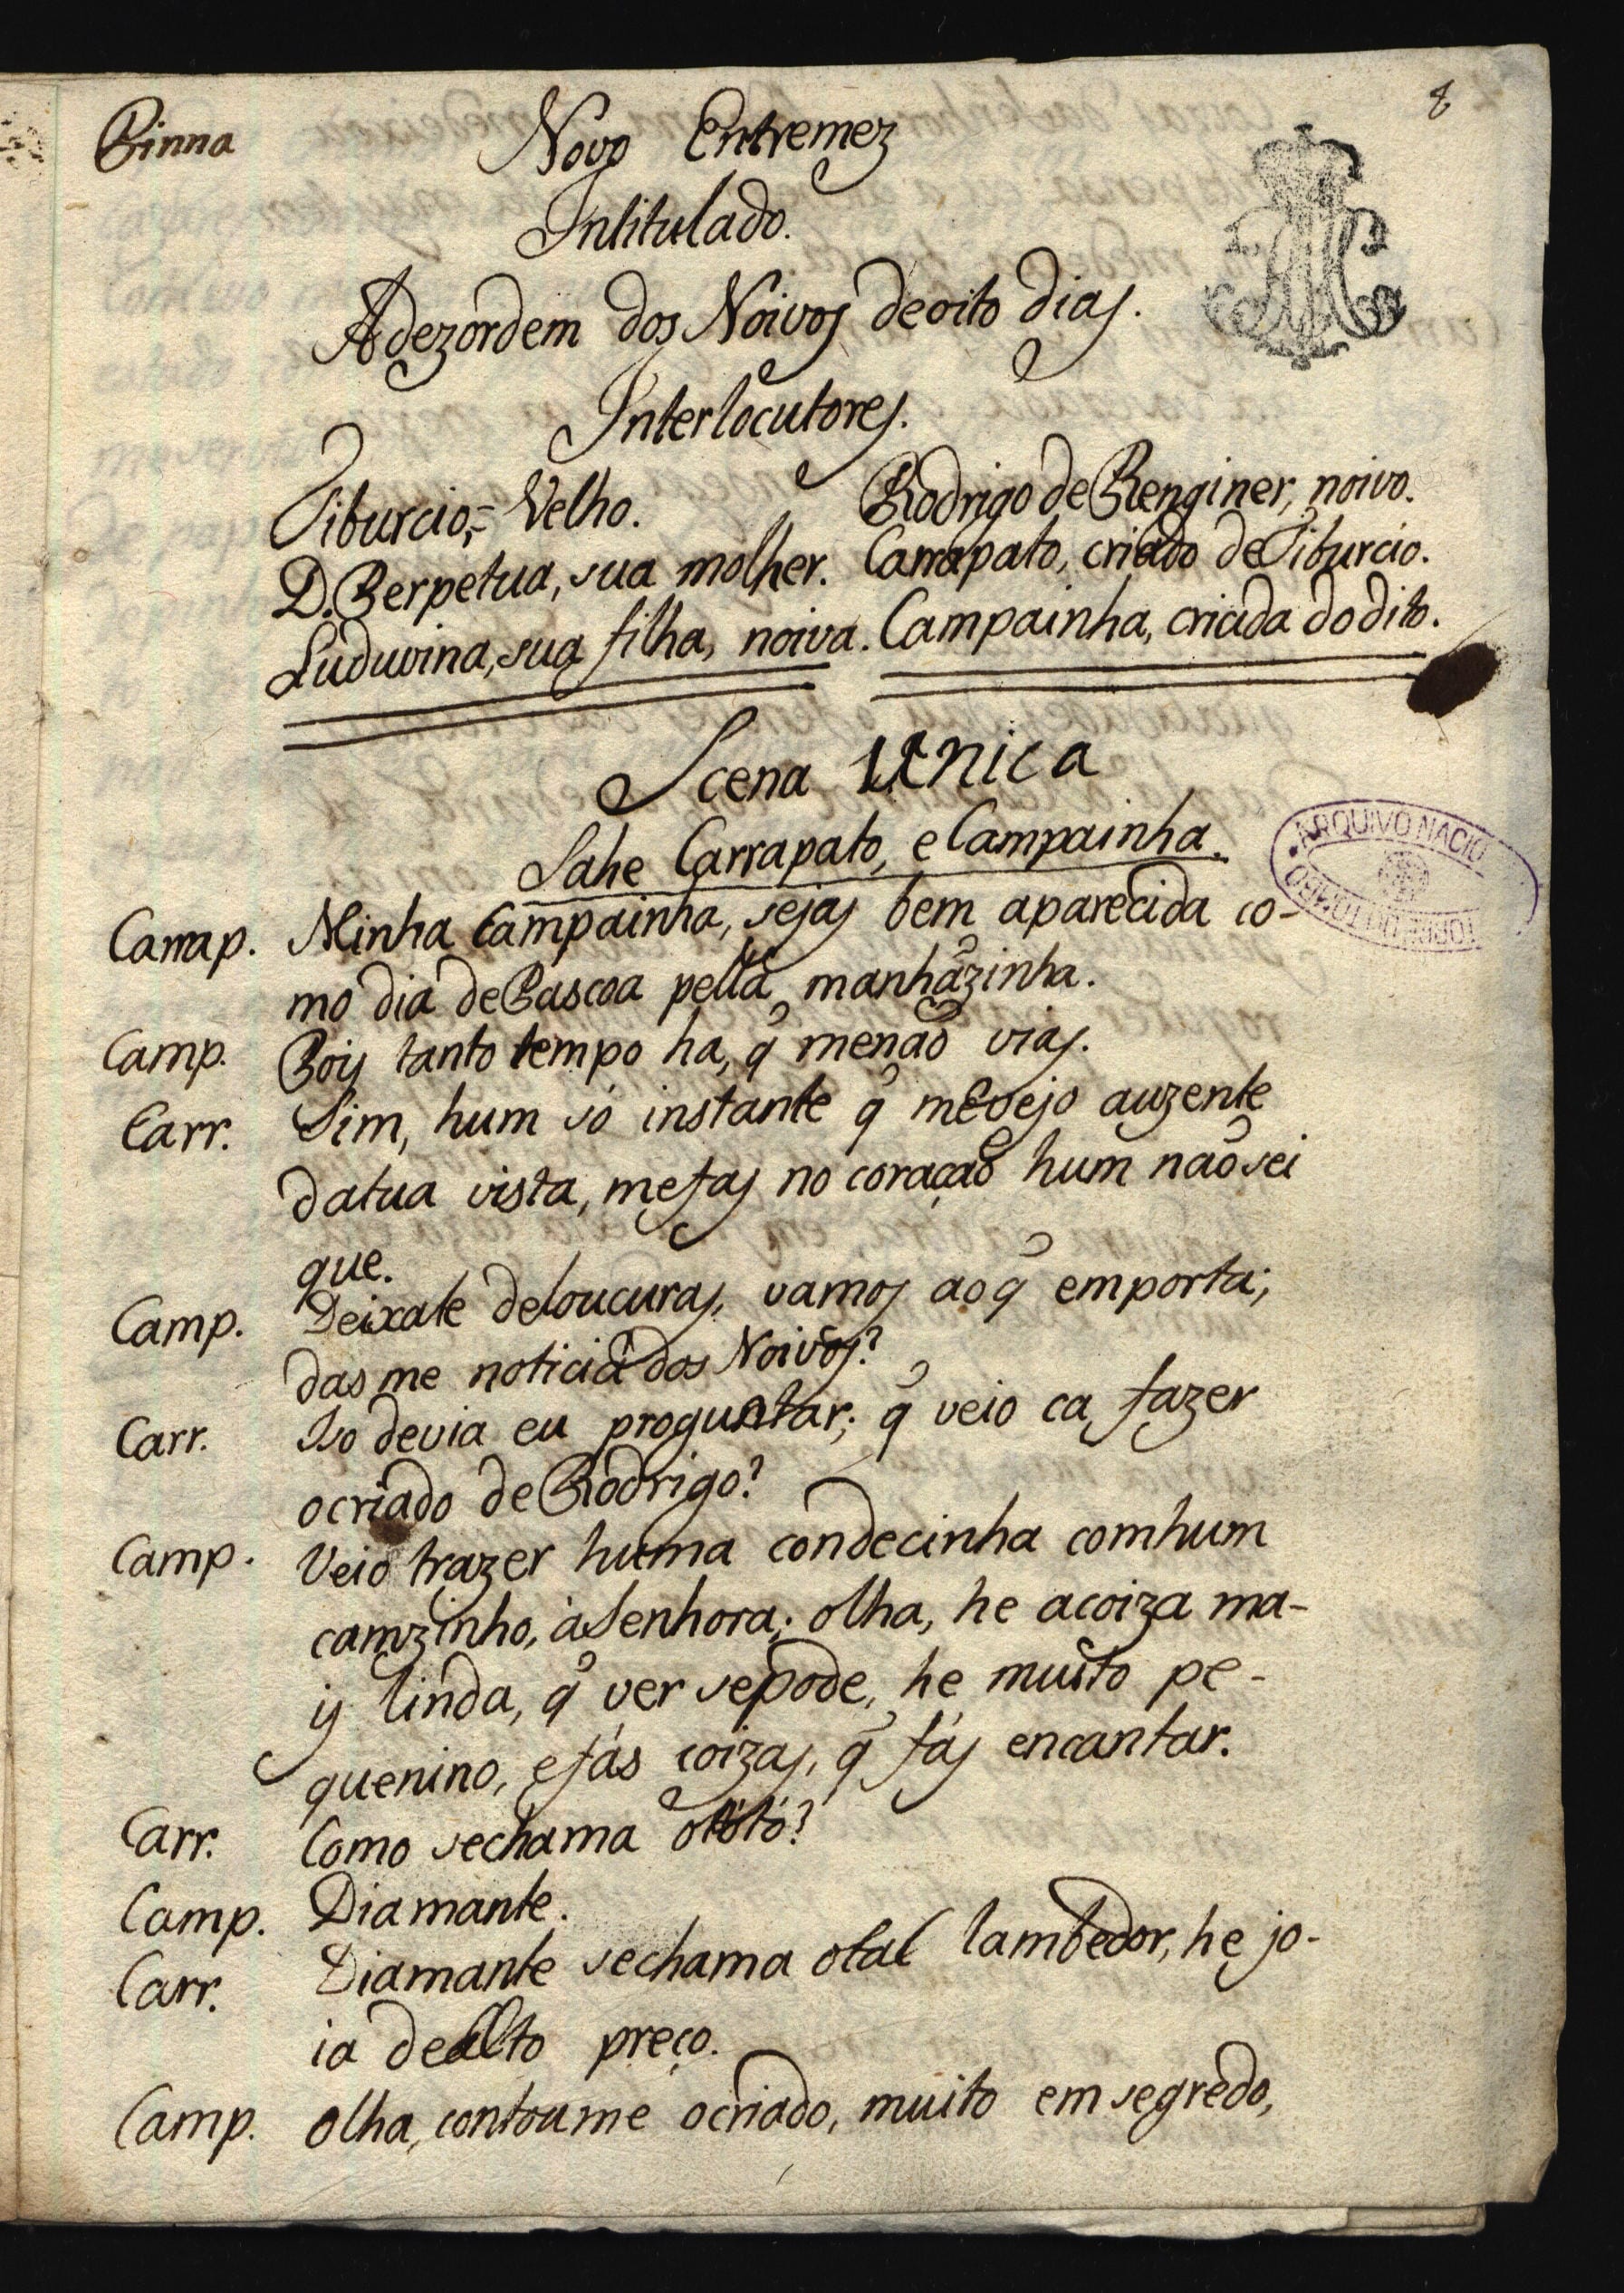 8
Pinna
Novo Entremez
Intitulado.
A dezordem dos Noivos de oito dias.
Interlocutores.
Tiburcio, Velho.
D. Perpetua, sua molher.
Luduvina, sua filha, noiva.
Rodrigo de Renginer, noivo.
Carrapato, criado de Tiburcio.
Campainha, criada do dito.
Scena Unica
Sahe Carrapato, e Campainha.
ARQUIVO NACIO
TORRE DO TOMBO
Carrap. Minha Campainha, sejas bem aparecida co-
mo dia de Pascoa pella manhãzinha.
Camp. Pois tanto tempo ha, q̃ me naõ vias.
Carr. Sim, hum só instante q̃ me vejo auzente
da tua vista, me fas no coraçaõ hum naõ sei
que.
Camp. Deixate de loucuras, vamos ao q̃ emporta;
das me noticia dos Noivos?
Carr. Iso devia eu proguntar; q̃ veio ca fazer
o criado de Rodrigo?
Camp. Veio trazer huma condecinha com hum
camzinho, à Senhora; olha, he a coiza ma-
is linda, q̃ ver se pode, he muito pe-
quenino, e fás coizas, q̃ fás encantar.
Carr. Como se chama o tótó?
Camp. Diamante.
Carr. Diamante se chama o tal lambedor, he jo-
ia de alto preço.
Camp. Olha, contou me o criado, muito em segredo,